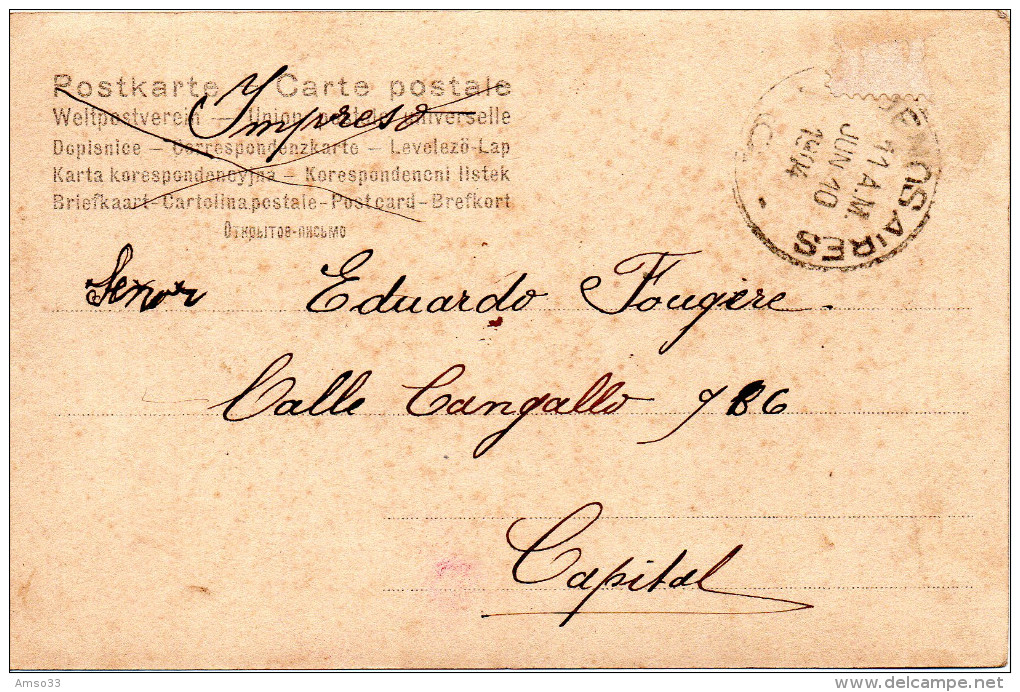 Postkarte – Carte postale
Impreso
Weltpostverein – Union postale universelle
Dopisnice – Correspondenzkarte – Levelező-Lap
Karta korespondencyjna – Korespondencni listek
Briefkaart-Cartolina postale-Postcard-Brefkort
Открытое-письмо
BUENOS AIRES
11 A.M.
JUN 10
1904
Senor Eduardo Fougère.
Calle Cangallo 786
Capital
Amso33
delcampe.net